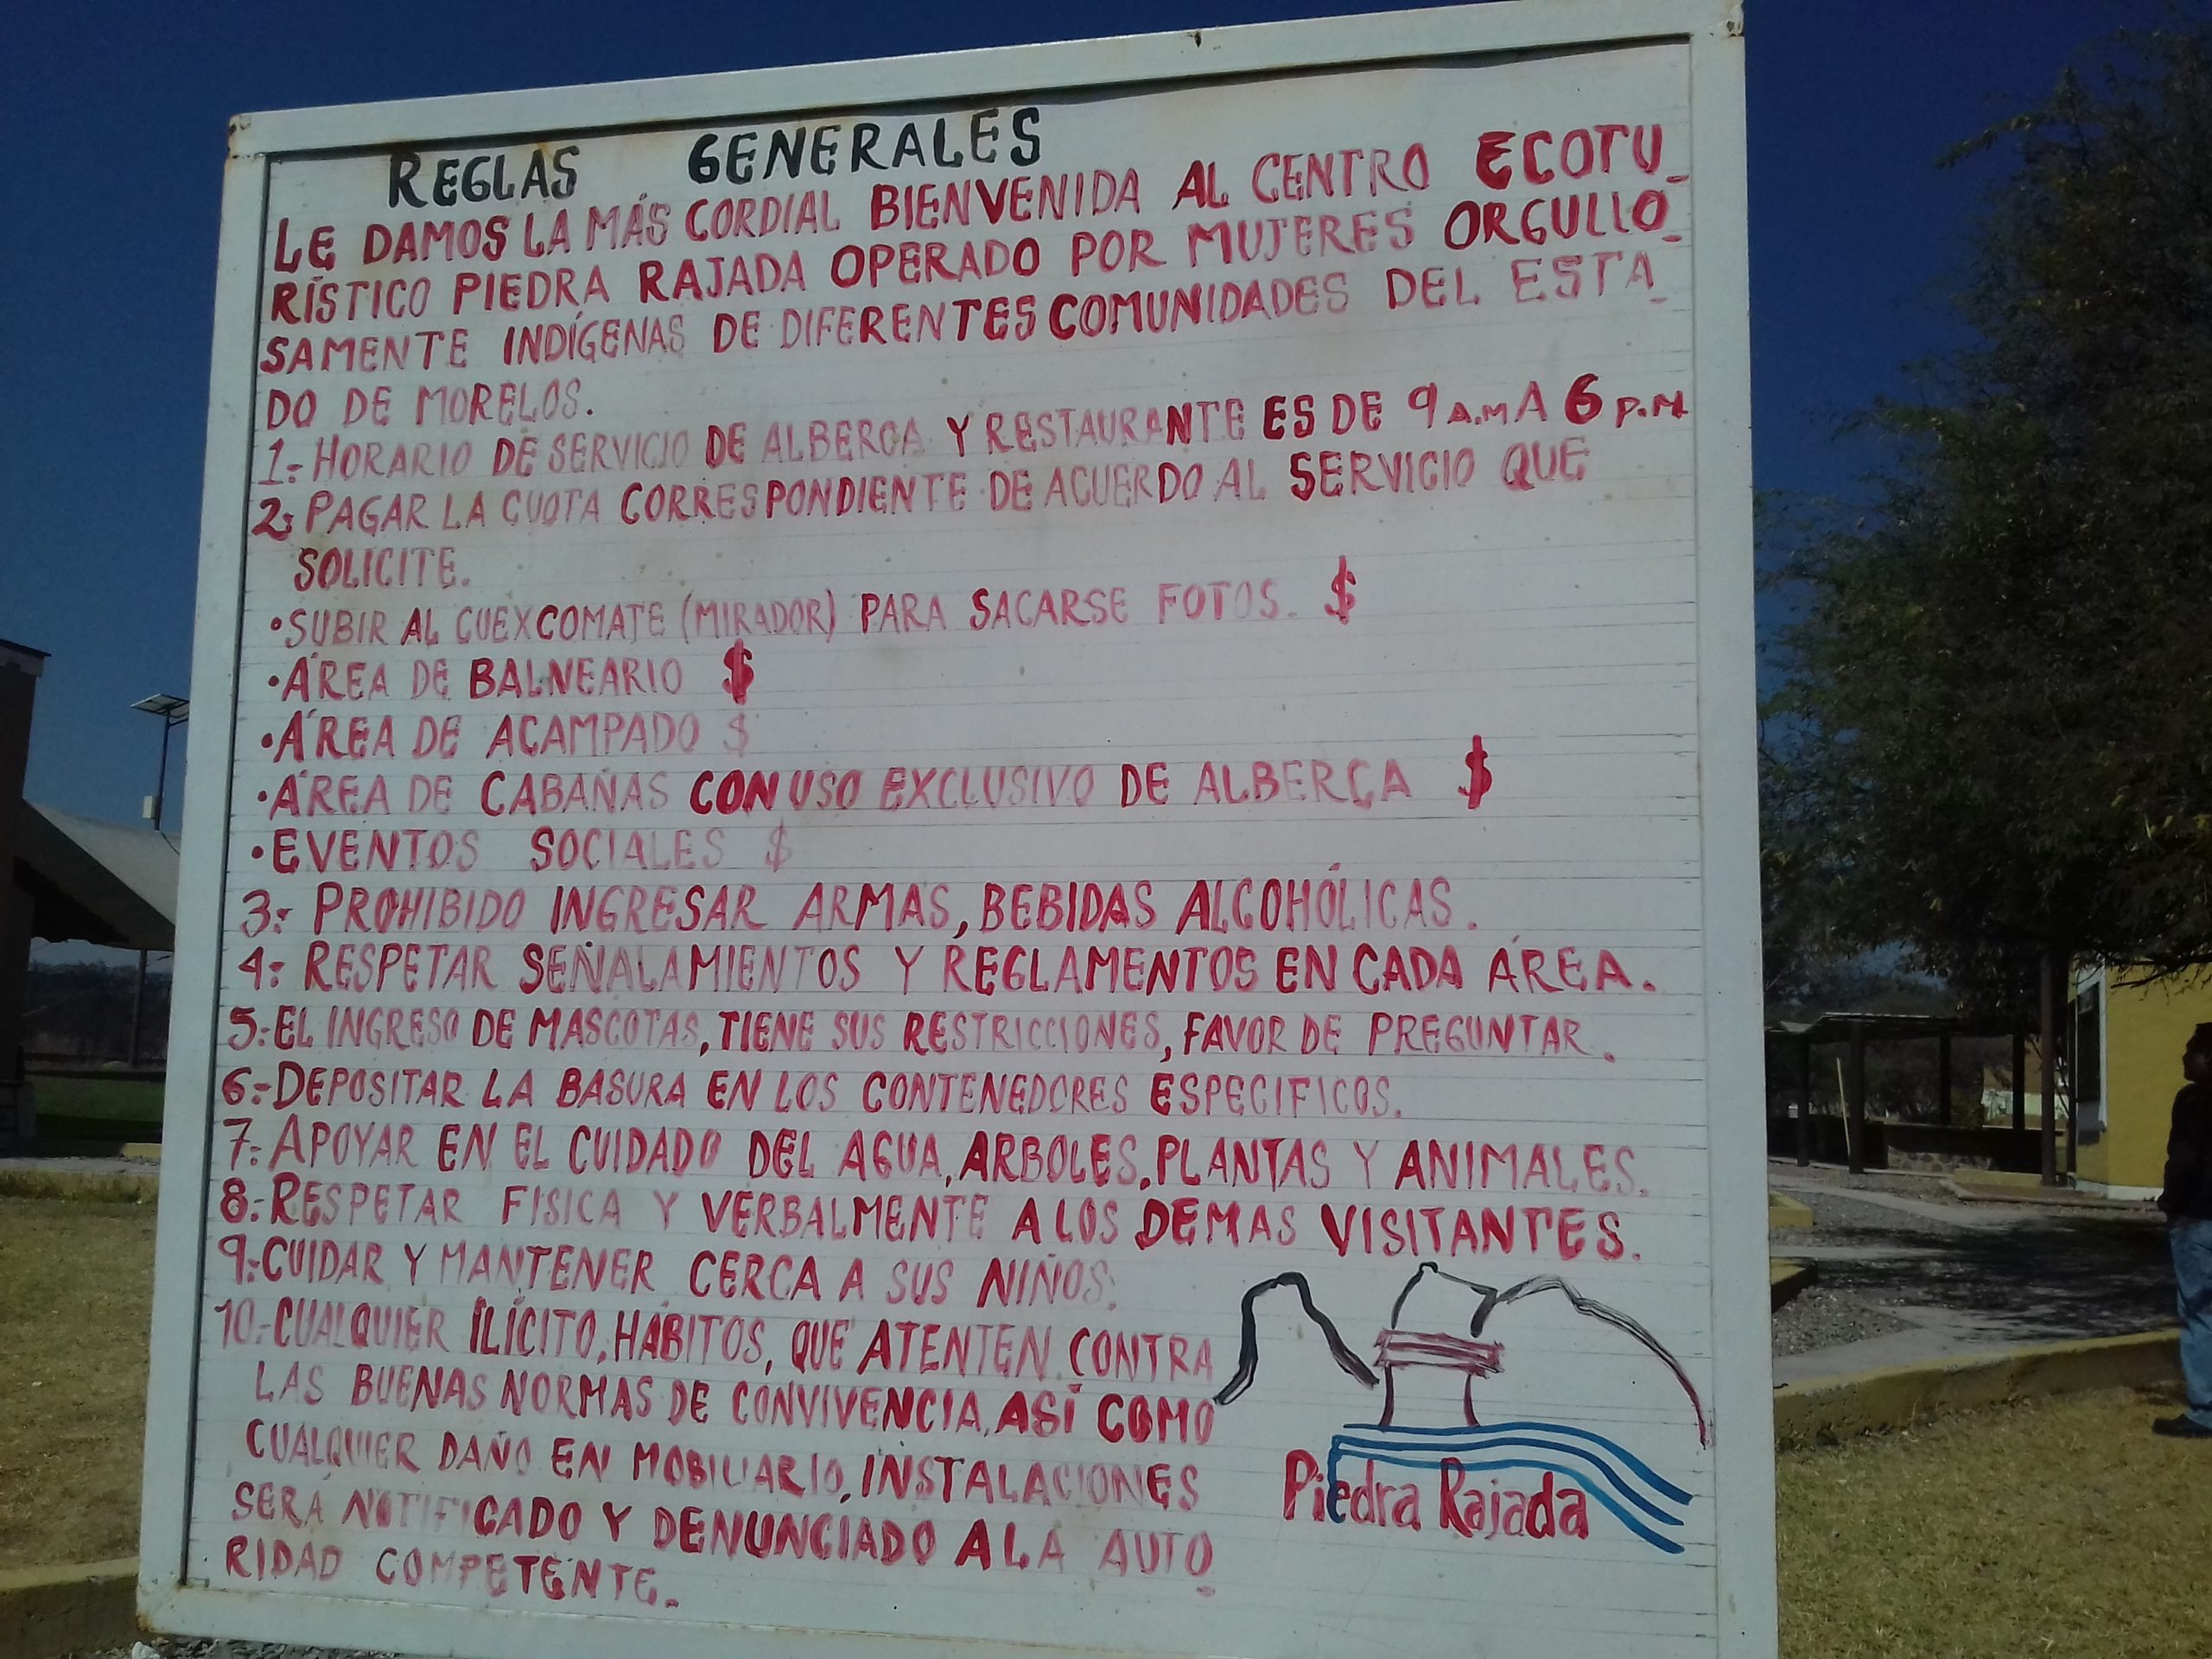 REGLAS GENERALES
LE DAMOS LA MÁS CORDIAL BIENVENIDA AL CENTRO ECOTU_
RÍSTICO PIEDRA RAJADA OPERADO POR MUJERES ORGULLO_
SAMENTE INDÍGENAS DE DIFERENTES COMUNIDADES DEL ESTA_
DO DE MORELOS.
1.- HORARIO DE SERVICIO DE ALBERCA Y RESTAURANTE ES DE 9 A.M A 6 P.M
2.- PAGAR LA CUOTA CORRESPONDIENTE DE ACUERDO AL SERVICIO QUE
SOLICITE.
•SUBIR AL CUEXCOMATE (MIRADOR) PARA SACARSE FOTOS. $
•ÁREA DE BALNEARIO $
•ÁREA DE ACAMPADO $
•ÁREA DE CABAÑAS CON USO EXCLUSIVO DE ALBERCA $
•EVENTOS SOCIALES $
3.- PROHIBIDO INGRESAR ARMAS, BEBIDAS ALCOHÓLICAS.
4.- RESPETAR SEÑALAMIENTOS Y REGLAMENTOS EN CADA ÁREA.
5.- EL INGRESO DE MASCOTAS, TIENE SUS RESTRICCIONES, FAVOR DE PREGUNTAR.
6.- DEPOSITAR LA BASURA EN LOS CONTENEDORES ESPECIFICOS.
7.- APOYAR EN EL CUIDADO DEL AGUA, ARBOLES, PLANTAS Y ANIMALES.
8.- RESPETAR FISICA Y VERBALMENTE A LOS DEMAS VISITANTES.
9.- CUIDAR Y MANTENER CERCA A SUS NIÑOS.
10.- CUALQUIER ILÍCITO, HÁBITOS, QUE ATENTEN CONTRA
LAS BUENAS NORMAS DE CONVIVENCIA, ASÍ COMO
CUALQUIER DAÑO EN MOBILIARIO, INSTALACIONES
SERÁ NOTIFICADO Y DENUNCIADO A LA AUTO_
RIDAD COMPETENTE.
Piedra Rajada